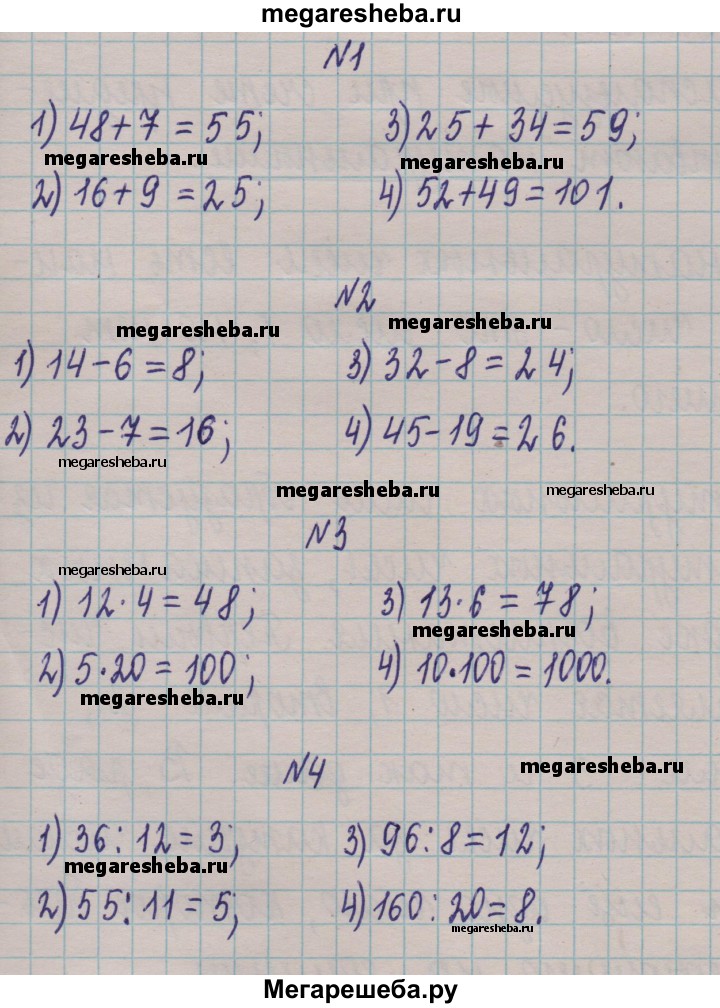 megaresheba.ru
№1
1) 48+7=55; 3) 25+34=59;
megaresheba.ru megaresheba.ru
2) 16+9=25; 4) 52+49=101.
№2
megaresheba.ru megaresheba.ru
1) 14-6=8; 3) 32-8=24;
2) 23-7=16; 4) 45-19=26.
megaresheba.ru
megaresheba.ru megaresheba.ru
№3
megaresheba.ru
1) 12·4=48; 3) 13·6=78;
megaresheba.ru
2) 5·20=100; 4) 10·100=1000.
megaresheba.ru
№4
megaresheba.ru
1) 36:12=3; 3) 96:8=12;
megaresheba.ru
2) 55:11=5; 4) 160:20=8.
megaresheba.ru
Мегарешеба.ру